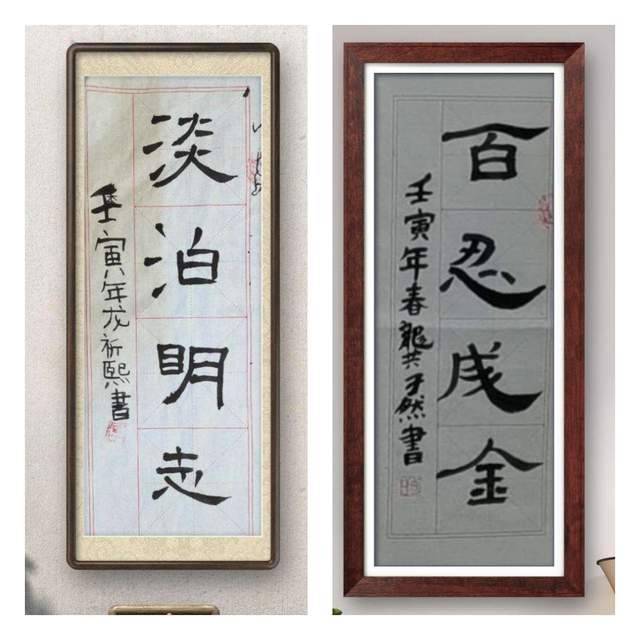 淡泊明志
壬寅年龙祈熙書
百忍成金
壬寅年春龔子然書